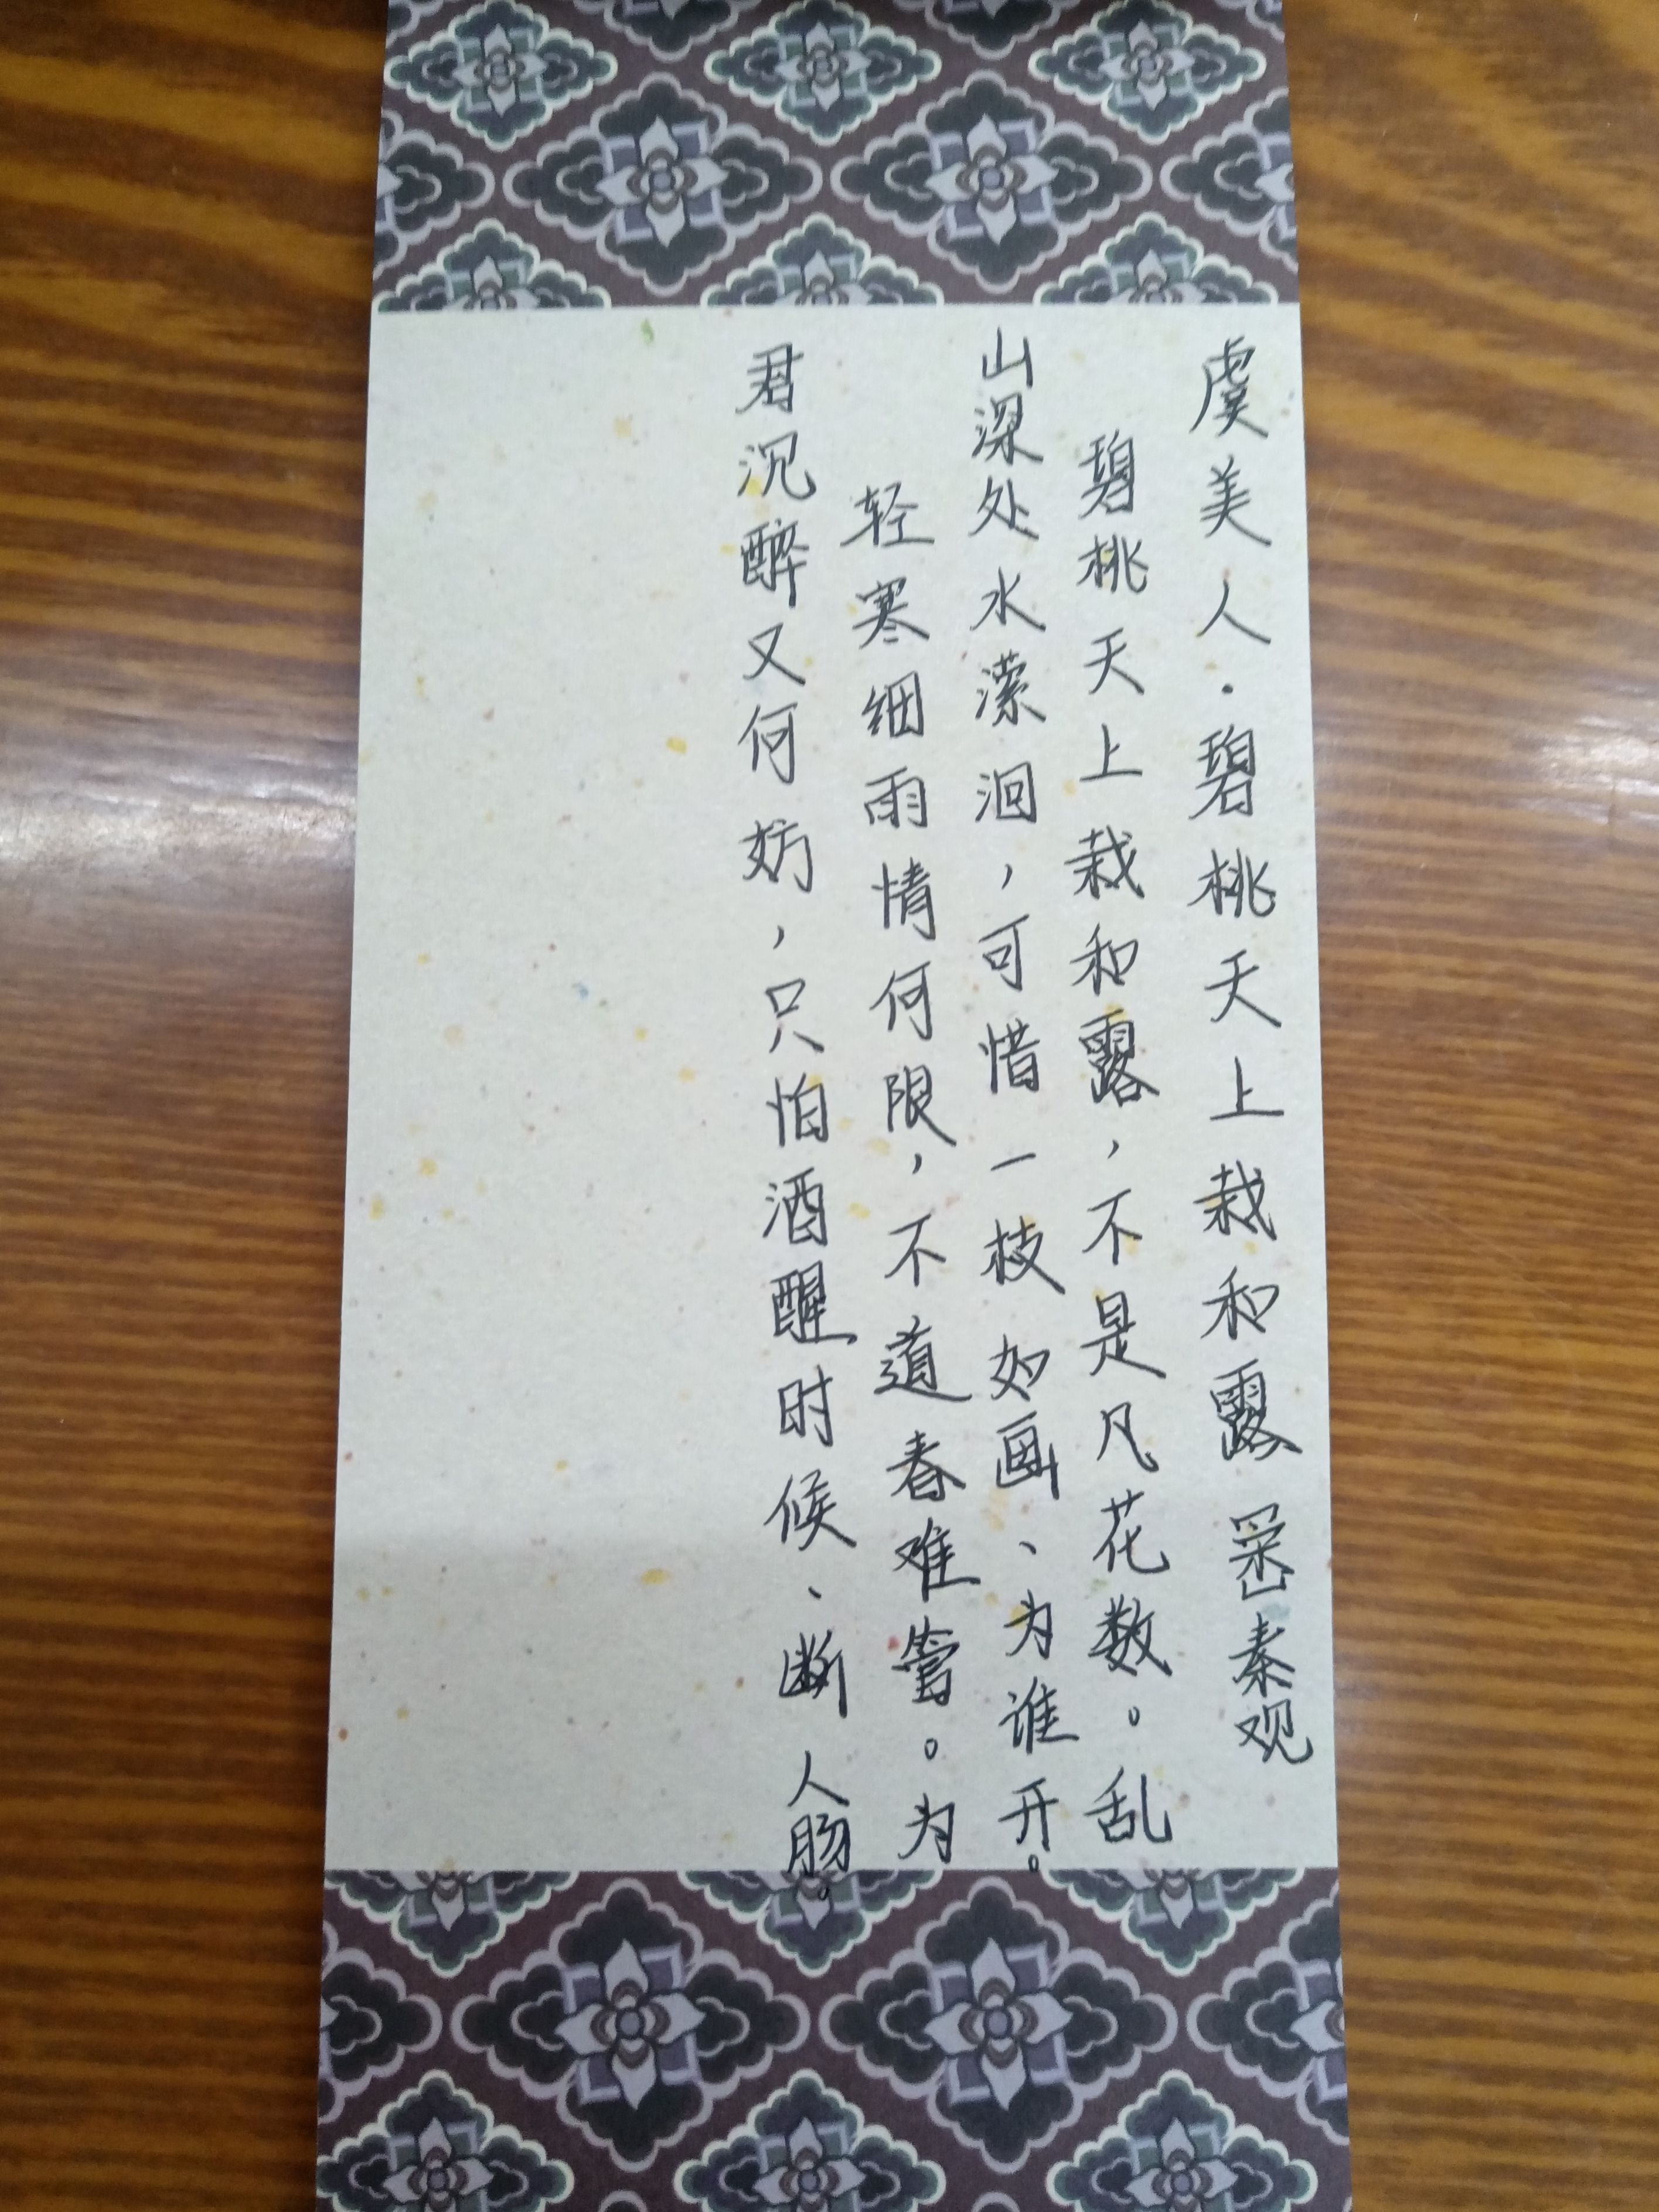 虞美人·碧桃天上栽和露 秦观
碧桃天上栽和露，不是凡花数。乱
山深处水潆洄，可惜一枝如画、为谁开。
轻寒细雨情何限，不道春难管。为
君沉醉又何妨，只怕酒醒时候、断人肠。